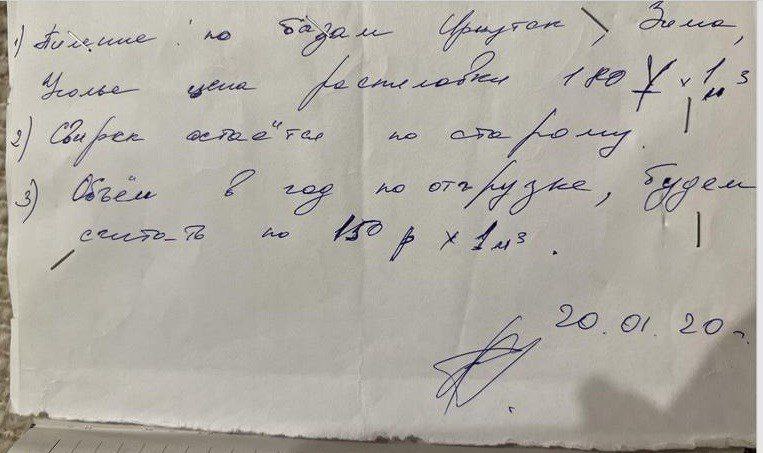 1) Пиление по базам Иркутск, Зима,
Усолье цена распиловки 180 ¥ x 1 м³
2) Свирск остаётся по старому.
3) Объём в год по отгрузке, будем
считать по 150 р x 1 м³.
20.01.20 г.